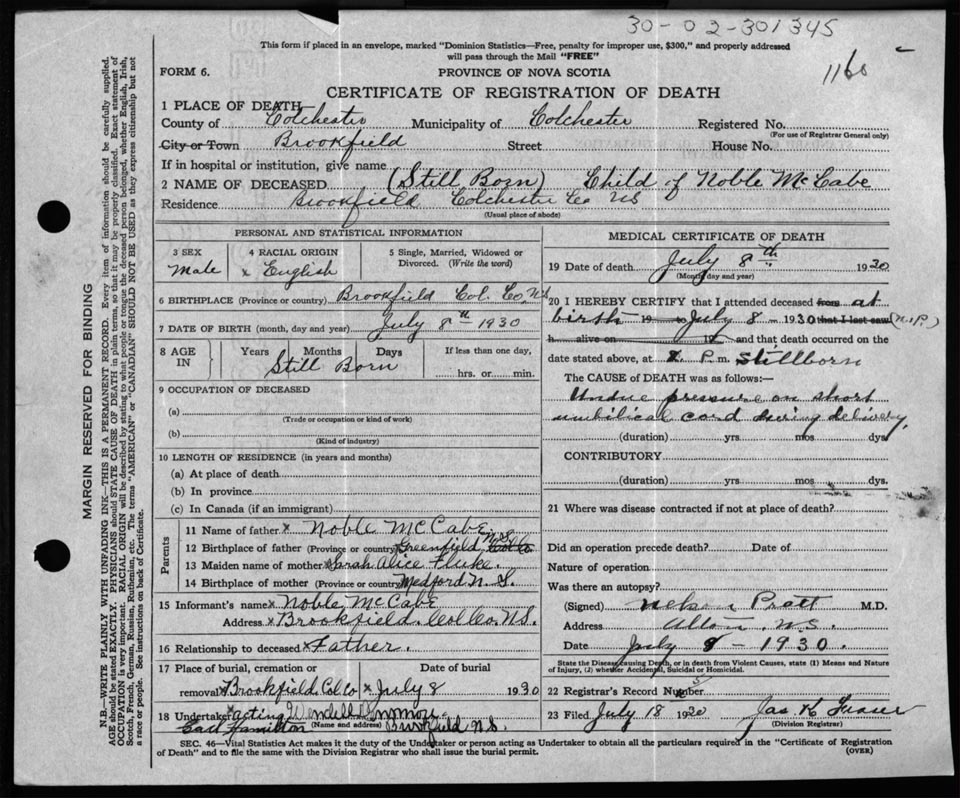 30-02-301345
This form if placed in an envelope, marked "Dominion Statistics—Free, penalty for improper use, $300," and properly addressed
will pass through the Mail "FREE"
FORM 6.
PROVINCE OF NOVA SCOTIA
1160
CERTIFICATE OF REGISTRATION OF DEATH
1 PLACE OF DEATH
County of Colchester Municipality of Colchester Registered No.
(For use of Registrar General only)
City or Town Brookfield Street House No.
If in hospital or institution, give name
2 NAME OF DECEASED (Still Born) Child of Noble McCabe
Residence Brookfield Colchester Co NS
(Usual place of abode)
PERSONAL AND STATISTICAL INFORMATION
3 SEX 4 RACIAL ORIGIN 5 Single, Married, Widowed or
Divorced. (Write the word)
Male x English
6 BIRTHPLACE (Province or country) Brookfield Col. Co, NS
7 DATE OF BIRTH (month, day and year) July 8th 1930
8 AGE IN Years Months Days If less than one day,
Still Born hrs. or min.
9 OCCUPATION OF DECEASED
(a)
(Trade or occupation or kind of work)
(b)
(Kind of industry)
10 LENGTH OF RESIDENCE (in years and months)
(a) At place of death
(b) In province
(c) In Canada (if an immigrant)
Parents
11 Name of father x Noble McCabe
12 Birthplace of father (Province or country) Greenfield N.S.
13 Maiden name of mother x Sarah Alice Fluke.
14 Birthplace of mother (Province or country) Medford N. S.
15 Informant's name x Noble McCabe
Address x Brookfield. Col Co. N.S.
16 Relationship to deceased x Father.
17 Place of burial, cremation or Date of burial
removal x Brookfield Col Co x July 8 1930
18 Undertaker x acting Wendell
Carl Hamilton (Name and address) Brookfield N.S.
MEDICAL CERTIFICATE OF DEATH
19 Date of death July 8th 1930
(Month, day and year)
20 I HEREBY CERTIFY that I attended deceased from at
birth 19 to July 8 - 1930 that I last saw (N.P.)
h alive on 19 and that death occurred on
date stated above, at P. m. Stillborn
The CAUSE of DEATH was as follows:—
Undue pressure on short
umbilical cord during delivery,
(duration) yrs. mos dys.
CONTRIBUTORY
(duration) yrs. mos dys.
21 Where was disease contracted if not at place of death?
Did an operation precede death? Date of
Nature of operation
Was there an autopsy?
(Signed) Nelson Pratt M.D.
Address Alton. N.S.
Date July 8 - 1930.
State the Disease causing Death, or in death from Violent Causes, state (1) Means and Nature
of Injury, (2) whether Accidental, Suicidal or Homicidal.
22 Registrar's Record Number
23 Filed July 18 1930 Jas K Fraser
(Division Registrar)
SEC. 46—Vital Statistics Act makes it the duty of the Undertaker or person acting as Undertaker to obtain all the particulars required in the "Certificate of Registration
of Death" and to file the same with the Division Registrar who shall issue the burial permit. (OVER)
MARGIN RESERVED FOR BINDING
N.B—WRITE PLAINLY WITH UNFADING INK—THIS IS A PERMANENT RECORD. Every item of information should be carefully supplied.
AGE should be stated EXACTLY. PHYSICIANS should STATE CAUSE OF DEATH in plain terms, so that it may be properly classified. Exact statement of
OCCUPATION is very important. RACIAL ORIGIN will be described by stating to what people or tongue the deceased person belonged, whether English, Irish,
Scotch, French, German, Russian, Ruthenian, etc. The terms "AMERICAN" or "CANADIAN" SHOULD NOT BE USED as they express citizenship but not
a race or people. See instructions on back of Certificate.